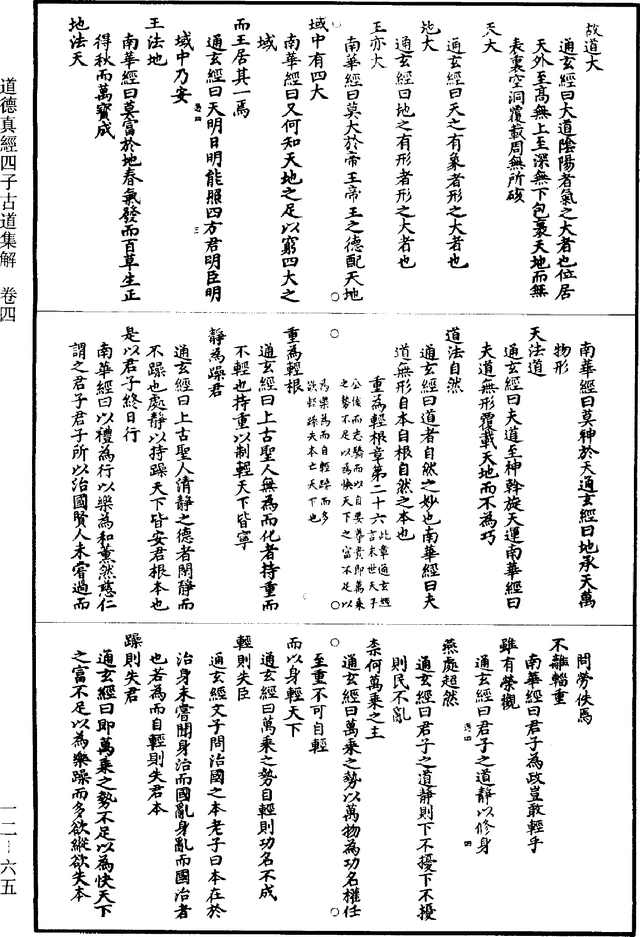 道德真經四子古道集解　卷四
故道大
通玄經曰大道陰陽者氣之大者也位居
天外至高無上至深無下包裹天地而無
表裏空洞覆載周無所礙
天大
通玄經曰天之有象者形之大者也
地大
通玄經曰地之有形者形之大者也
王亦大
南華經曰莫大於帝王帝王之德配天地
域中有四大
南華經曰又何知天地之足以窮四大之
域
而王居其一焉
通玄經曰天明日明能照四方君明臣明
域中乃安
王法地
南華經曰莫富於地春氣發而百草生正
得秋而萬寶成
地法天
南華經曰莫神於天通玄經曰地承天萬
物形
天法道
通玄經曰夫道至神斡旋天運南華經曰
夫道無形覆載天地而不為巧
道法自然
通玄經曰道者自然之妙也南華經曰夫
道無形自本自根自然之本也
重為輕根章第二十六
此章通玄經
言末世天子
公侯而志驕而以自要尊貴即萬乘
之勢不足以為快天下之富不足以
為樂為而自輕躁而多
欲輕躁失本亡天下也
重為輕根
通玄經曰上古聖人無為而化者持重而
不輕也持重以制輕天下皆寧
靜為躁君
通玄經曰上古聖人清靜之德者閑靜而
不躁也處靜以持躁天下皆安君根本也
是以君子終日行
南華經曰以禮為行以樂為和薰然慈仁
謂之君子君子所以治國賢人未嘗過而
問勞佚焉
不離輜重
南華經曰君子為政豈敢輕乎
雖有榮觀
通玄經曰君子之道靜以修身
燕處超然
通玄經曰君子之道靜則下不擾下不擾
則民不亂
柰何萬乘之主
通玄經曰萬乘之勢以萬物為功名權任
至重不可自輕
而以身輕天下
通玄經曰萬乘之勢自輕則功名不成
輕則失臣
通玄經文子問治國之本老子曰本在於
治身未嘗聞身治而國亂身亂而國治者
也若為而自輕則失君本
躁則失君
通玄經曰即萬乘之勢不足以為快天下
之富不足以為樂躁而多欲縱欲失本
一二—六五